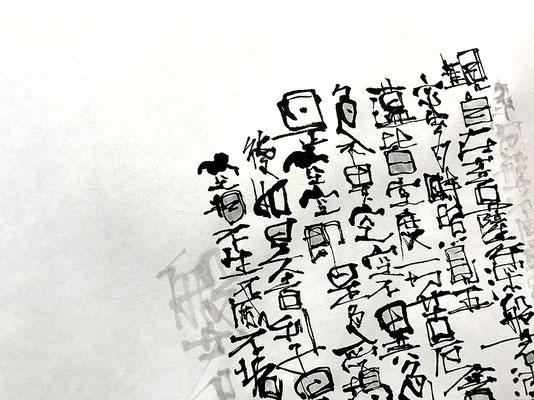 觀自在菩薩行深般若波
蜜多時照見五
蘊皆空度一切苦厄舎
色不異空空不異色
是空空即是色受想
復如是舎利子是
空相不生不滅不垢